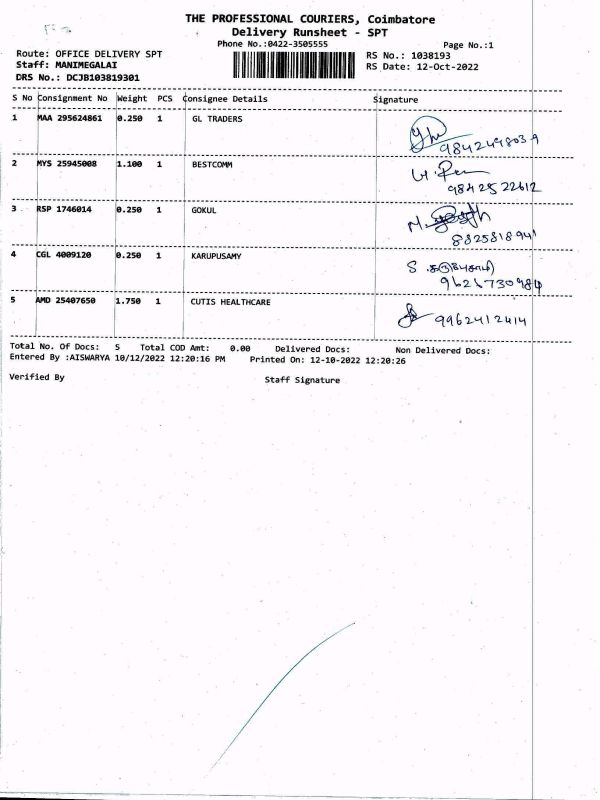 THE PROFESSIONAL COURIERS, Coimbatore
Delivery Runsheet - SPT
Phone No.:0422-3505555 Page No.:1
Route: OFFICE DELIVERY SPT RS No.: 1038193
Staff: MANIMEGALAI RS Date: 12-Oct-2022
DRS No.: DCJB103819301
S No Consignment No Weight PCS Consignee Details Signature
1 MAA 295624861 0.250 1 GL TRADERS
9842498039
2 MYS 25945008 1.100 1 BESTCOMM
9842522612
3 RSP 1746014 0.250 1 GOKUL
8825818941
4 CGL 4009120 0.250 1 KARUPUSAMY
S
5 AMD 25407650 1.750 1 CUTIS HEALTHCARE
9962412414
Total No. Of Docs: 5 Total COD Amt: 0.00 Delivered Docs: Non Delivered Docs:
Entered By :AISWARYA 10/12/2022 12:20:16 PM Printed On: 12-10-2022 12:20:26
Verified By Staff Signature